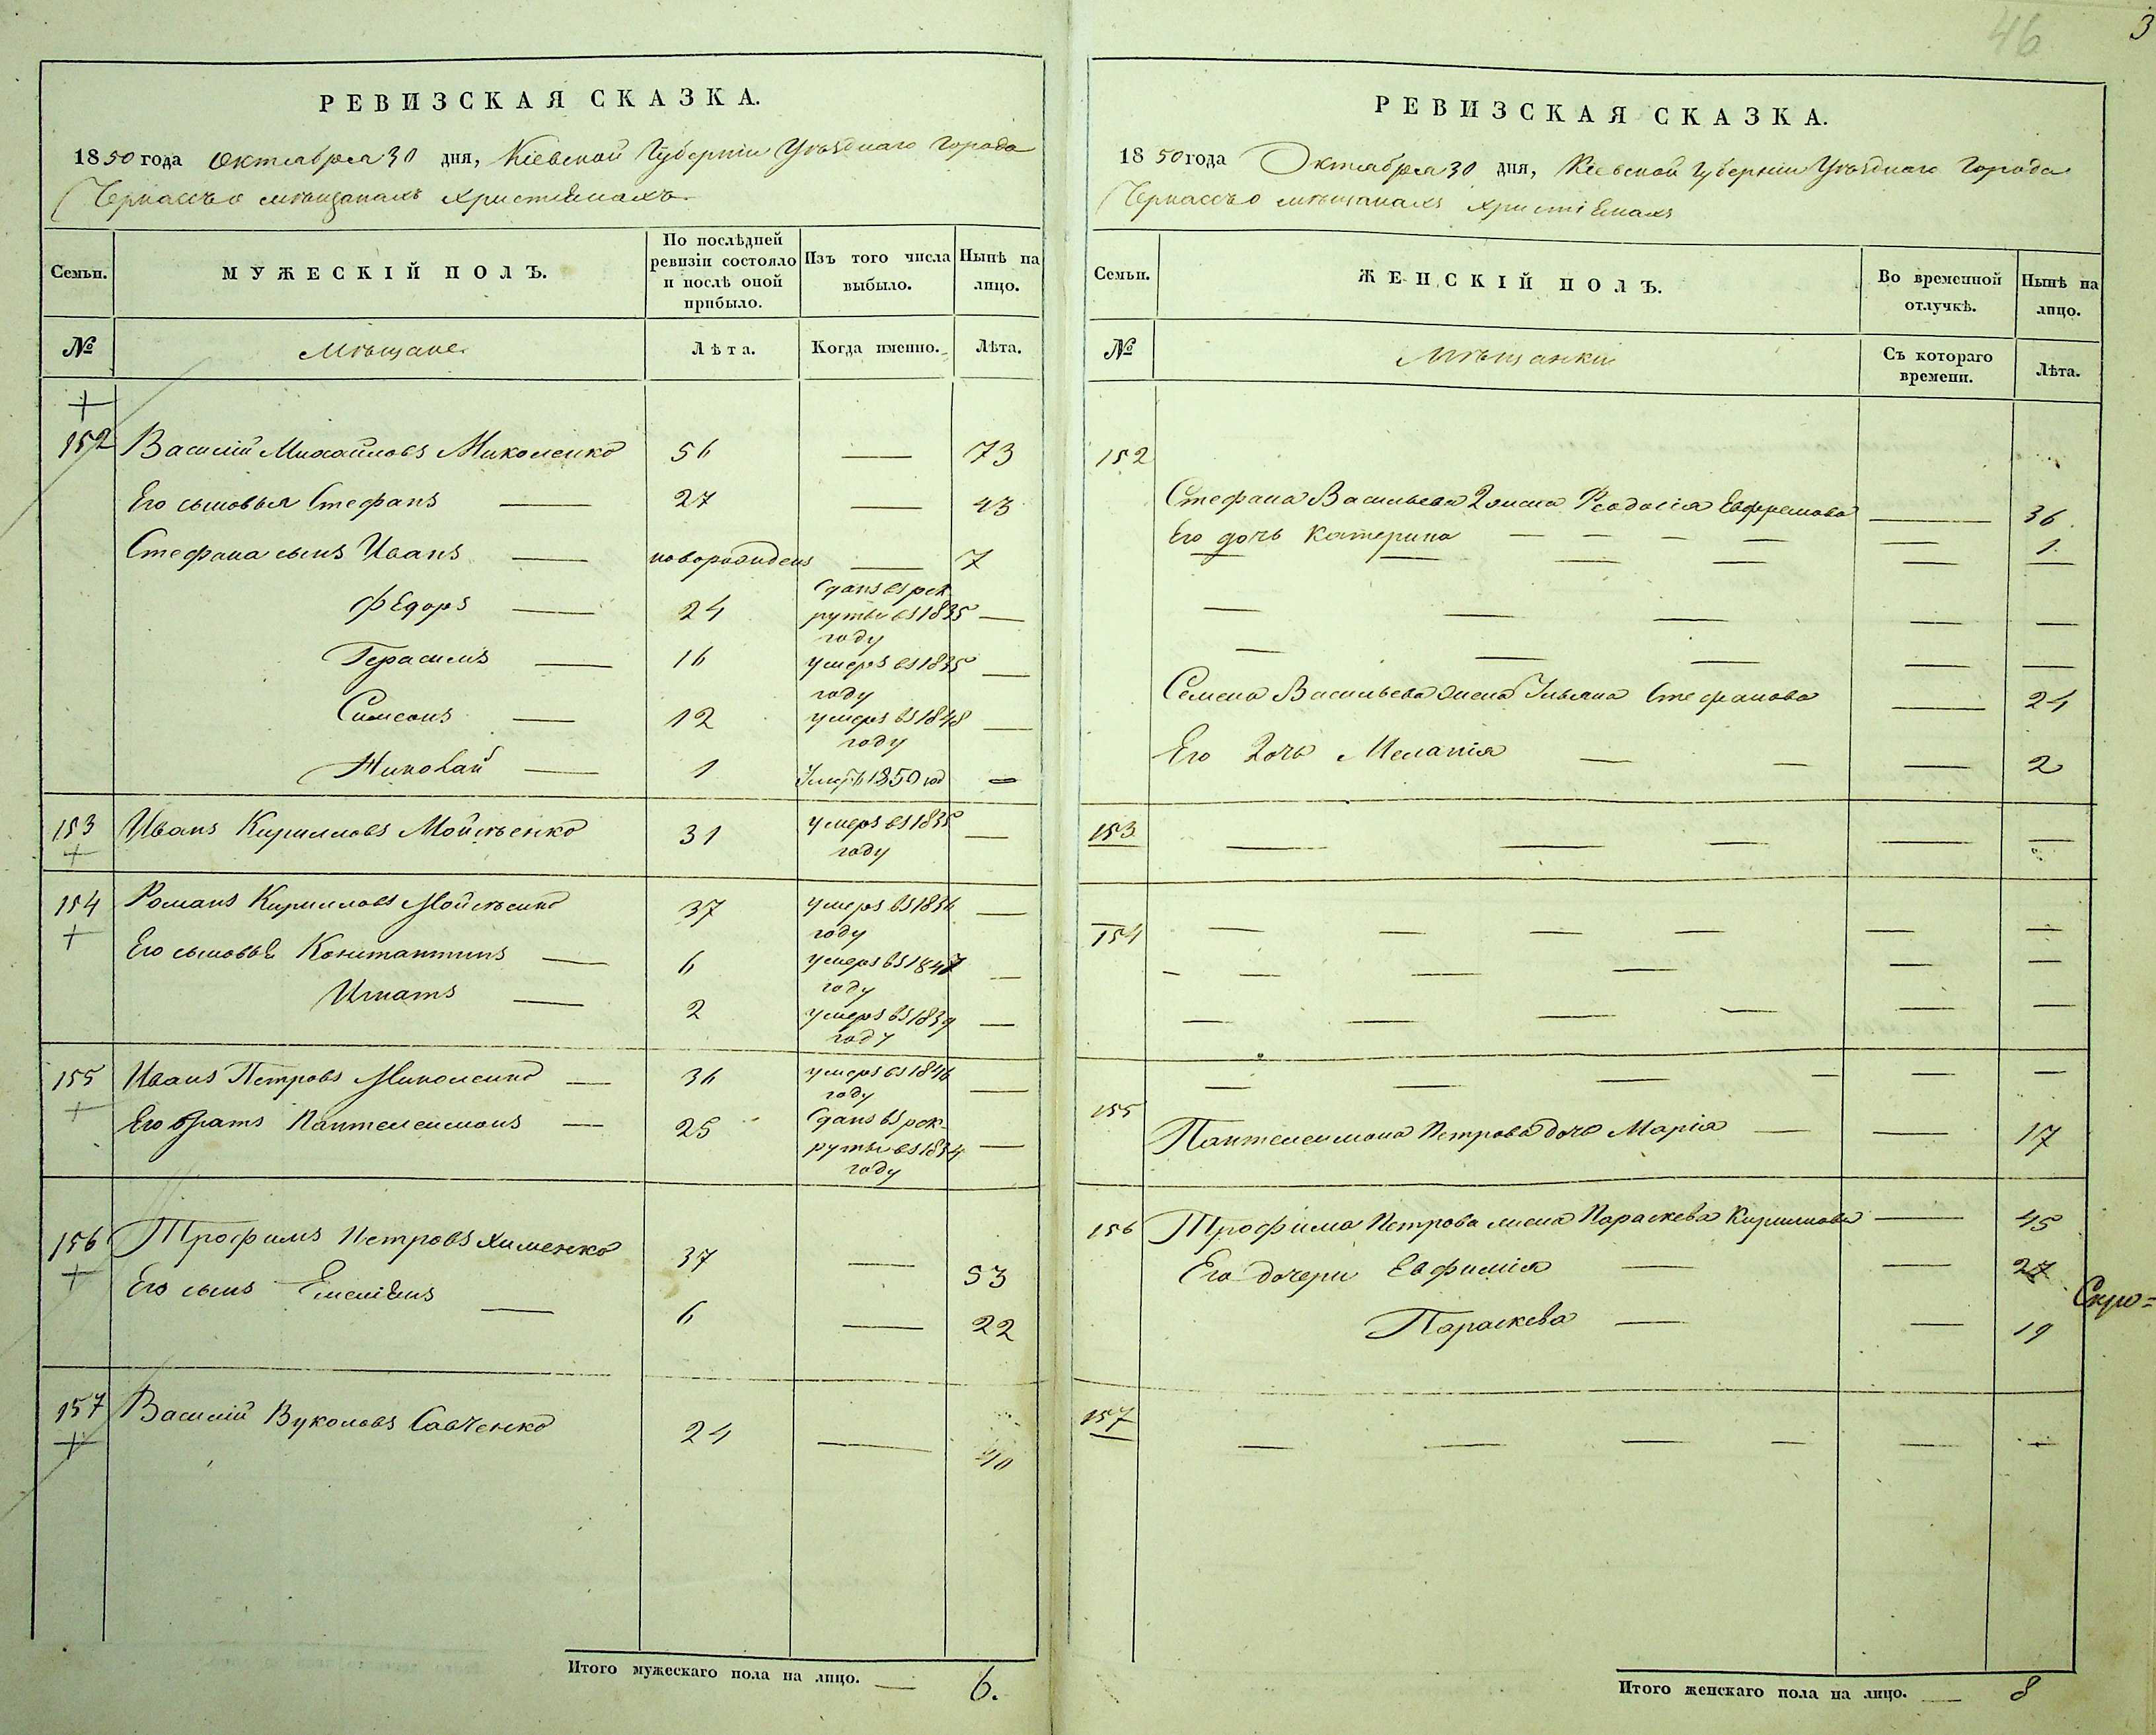 46
3
РЕВИЗСКАЯ СКАЗКА.
1850 года Октября 30 дня, Кіевской Губерніи Уѣзднаго Города
Черкассъ о мѣщанахъ Христіянахъ
Семьи.
МУЖЕСКІЙ ПОЛЪ.
По послѣдней ревизіи состояло и послѣ оной прибыло.
Изъ того числа выбыло.
Нынѣ на лицо.
№
Мѣщане
Лѣта.
Когда именно.
Лѣта.
152 Василій Михайловъ Миколенко 56 — 73
Его сыновья Стефанъ — 27 — 43
Стефана сынъ Иванъ — новорожденъ — 7
Ѳедоръ — 24 Сданъ въ рекруты въ 1835 году —
Герасимъ — 16 умеръ въ 1835 году —
Симеонъ — 12 умеръ въ 1848 году —
Николай — 1 Умеръ 1850 год —
153 Иванъ Кирилловъ Мойсѣенко 31 умеръ въ 1835 году —
154 Романъ Кирилловъ Мойсѣенко 37 умеръ въ 1836 году —
Его сыновьѣ Константинъ — 6 умеръ въ 1847 году —
Игнатъ — 2 умеръ въ 1839 году —
155 Иванъ Петровъ Миколенко — 36 умеръ въ 1846 году —
Его братъ Пантелеимонъ — 25 Сданъ въ рекруты въ 1834 году —
156 Трофимъ Петровъ Хименко 37 — 53
Его сынъ Емеліянъ — 6 — 22
157 Василій Вуколовъ Савченко 24 — 40
Итого мужескаго пола на лицо. — 6.
РЕВИЗСКАЯ СКАЗКА.
1850 года Октября 30 дня, Кіевской Губерніи Уѣзднаго Города
Черкассъ о мѣщанахъ Христіянахъ
Семьи.
ЖЕНСКІЙ ПОЛЪ.
Во временной отлучкѣ.
Нынѣ на лицо.
№
Мѣщанки
Съ котораго времени.
Лѣта.
152
Стефана Васильева жена Ѳеодосія Евфремова — 36
Его дочь Катерина — 1
Семена Васильева жена Ульяна Стефанова — 24
Его дочь Меланія — 2
153 —
154 —
155
Пантелеимона Петрова дочь Марія — 17
156 Трофима Петрова жена Параскева Кириллова — 45
Его дочери Евфимія — 27
Параскева — 19
Скрѣ=
157 —
Итого женскаго пола на лицо. — 8